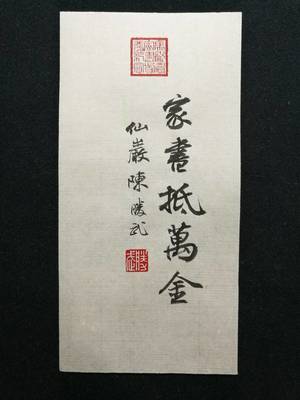 家書抵萬金
仙巖陳勝武